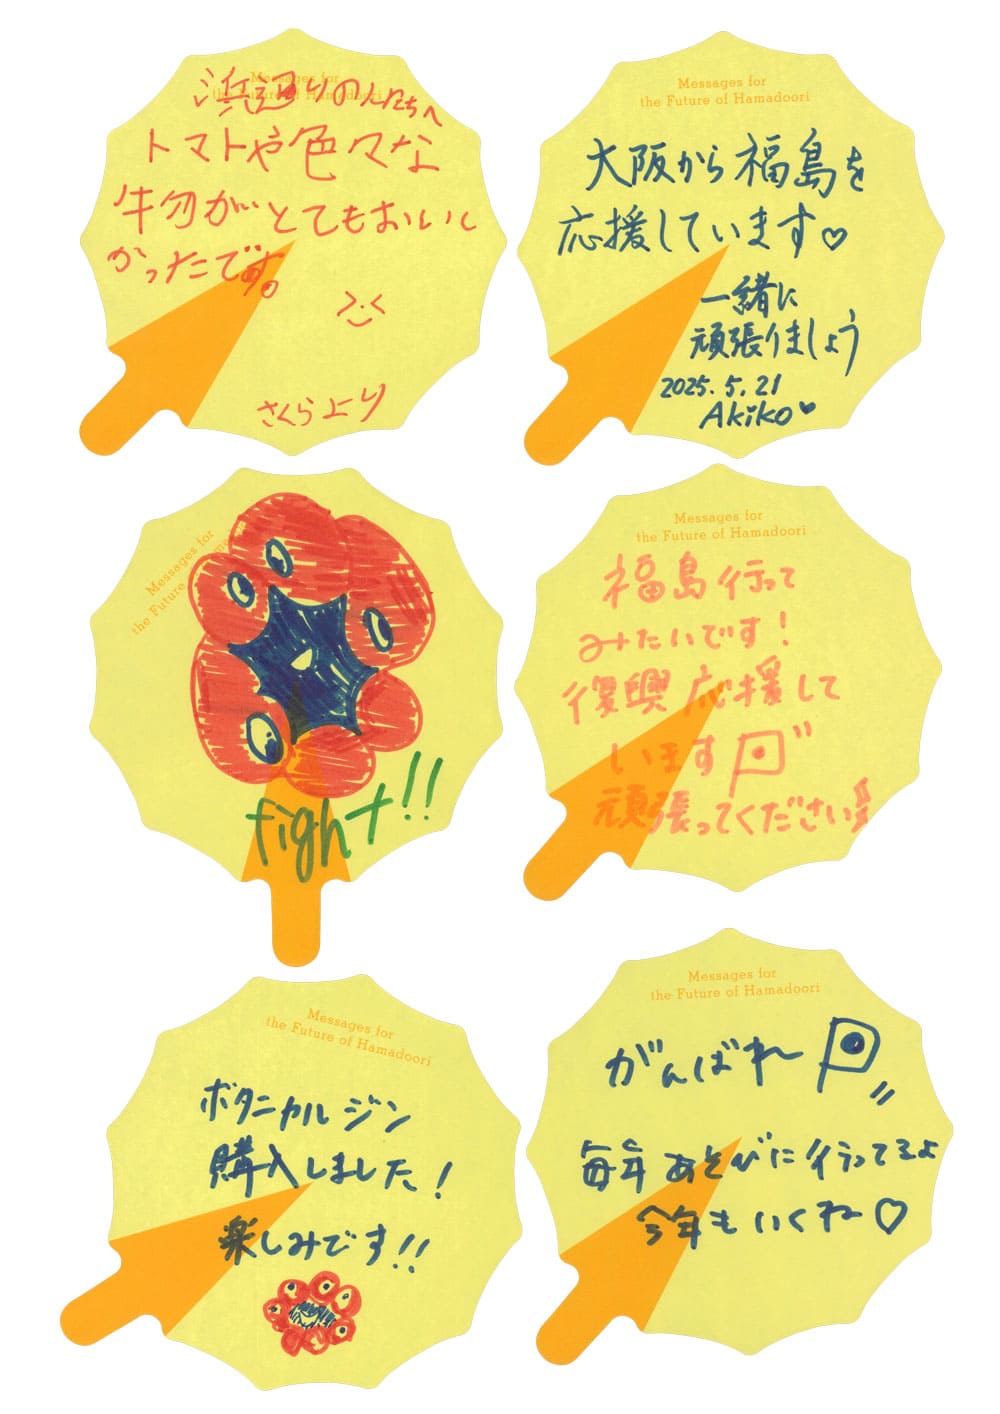 Messages for
the Future of Hamadoori
浜通りの人たちへ
トマトや色々な
牛勿がとてもおいし
かったです。
さくらより
Messages for
the Future of Hamadoori
大阪から福島を
応援しています♡
一緒に
頑張りましょう
2025.5.21
Akiko♥
Messages for
the Future
fight!!
Messages for
the Future of Hamadoori
福島行って
みたいです!
復興応援して
います
頑張ってください!!
Messages for
the Future of Hamadoori
ボタニカルジン
購入しました!
楽しみです!!
Messages for
the Future of Hamadoori
がんばれー
毎年あそびに行ってるよ
今年もいくねー♡